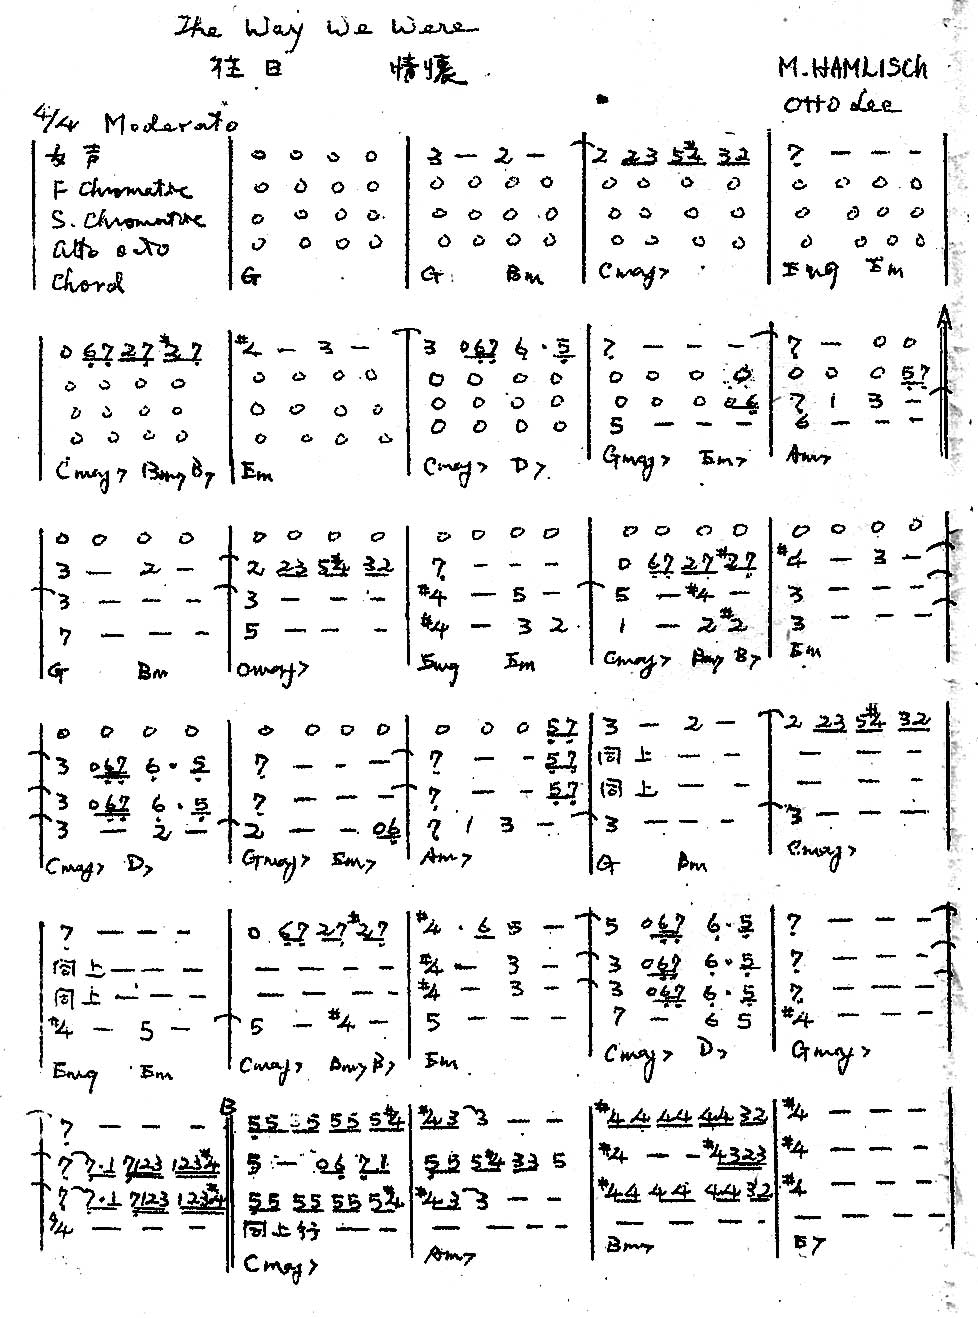 The Way We Were
往日 情懷
M. HAMLISCH
OTTO Lee
4/4 Moderato
女声 | 0 0 0 0 | 3 — 2 — | 2 23 5#4 32 | 7 — — —
F Chromatic | 0 0 0 0 | 0 0 0 0 | 0 0 0 0 | 0 0 0 0
S. Chromatic | 0 0 0 0 | 0 0 0 0 | 0 0 0 0 | 0 0 0 0
alto | 0 0 0 0 | 0 0 0 0 | 0 0 0 0 | 0 0 0 0
Chord | G | G Bm | Cmaj7 | Em9 Em
0 67 27 #27 | #4 — 3 — | 3 067 6 · 5 | 7 — — — | 7 — 0 0
0 0 0 0 | 0 0 0 0 | 0 0 0 0 | 0 0 0 0 | 0 0 0 57
0 0 0 0 | 0 0 0 0 | 0 0 0 0 | 0 0 0 06 | 7 1 3 —
0 0 0 0 | 0 0 0 0 | 0 0 0 0 | 5 — — — | 6 — — —
Cmaj7 Bm7 B7 | Em | Cmaj7 D7 | Gmaj7 Em7 | Am7
0 0 0 0 | 0 0 0 0 | 0 0 0 0 | 0 0 0 0 | 0 0 0 0
3 — 2 — | 2 23 5#4 32 | 7 — — — | 0 67 27 #27 | #4 — 3 —
3 — — — | 3 — — — | #4 — 5 — | 5 — #4 — | 3 — — —
7 — — — | 5 — — — | #4 — 3 2 | 1 — 2 #2 | 3 — — —
G Bm | Cmaj7 | Em9 Em | Cmaj7 Bm7 B7 | Em
0 0 0 0 | 0 0 0 0 | 0 0 0 57 | 3 — 2 — | 2 23 5#4 32
3 067 6 · 5 | 7 — — — | 7 — — 57 | 同上 — — | — — — —
3 067 6 · 5 | 7 — — — | 7 — — 57 | 同上 — — | — — — —
3 — 2 — | 2 — — 06 | 7 1 3 — | 3 — — — | 3 — — —
Cmaj7 D7 | Gmaj7 Em7 | Am7 | G Bm | Cmaj7
7 — — — | 0 67 27 #27 | #4 · 6 5 — | 5 067 6 · 5 | 7 — — —
同上 — — — | — — — — | #4 — 3 — | 3 067 6 · 5 | 7 — — —
同上 — — — | — — — — | #4 — 3 — | 3 067 6 · 5 | 7 — — —
#4 — 5 — | 5 — #4 — | 5 — — — | 7 — 6 5 | #4 — — —
Em9 Em | Cmaj7 Bm7 B7 | Em | Cmaj7 D7 | Gmaj7
B
7 — — — | 55 55 55 5#4 | #43 3 — — | #44 44 44 32 | #4 — — —
7 7·1 7123 123#4 | 5 — 06 71 | 55 5#4 33 5 | #4 — — #4323 | #4 — — —
7 7·1 7123 123#4 | 55 55 55 5#4 | #43 3 — — | #44 44 44 32 | #4 — — —
#4 — — — | 同上行 — — | — — — — | — — — — | — — — —
Cmaj7 | Am7 | Bm7 | E7